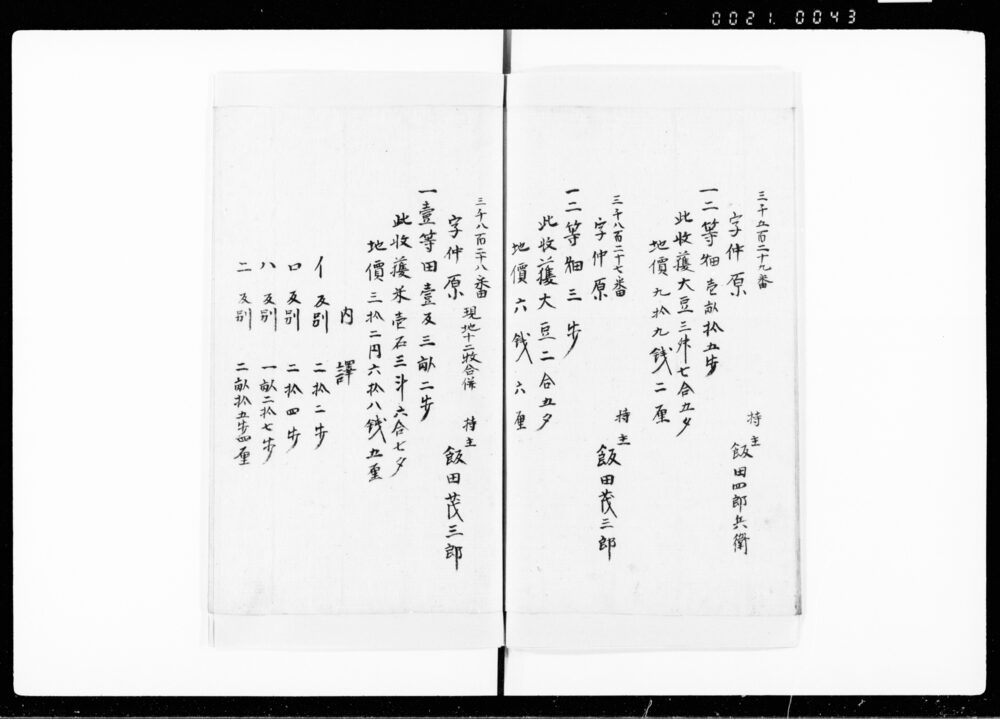 0021.0043
三千五百二十九番
字仲原
持主 飯田四郎兵衛
一二等畑壱畝拾五歩
此收獲大豆三舛七合五夕
地價九拾九銭二厘
三千八百二十七番
字仲原
持主 飯田茂三郎
一二等畑三歩
此收獲大豆二合五夕
地價六銭六厘
三千八百二十八番
字仲原 現地十二枚合併
持主 飯田茂三郎
一壹等田壹反三畝二歩
此收獲米壱石三斗六合七夕
地價三拾二円六拾八銭五厘
内譯
イ 反別 二拾二歩
ロ 反別 二拾四歩
ハ 反別 一畝二拾七歩
ニ 反別 二畝拾五歩四厘